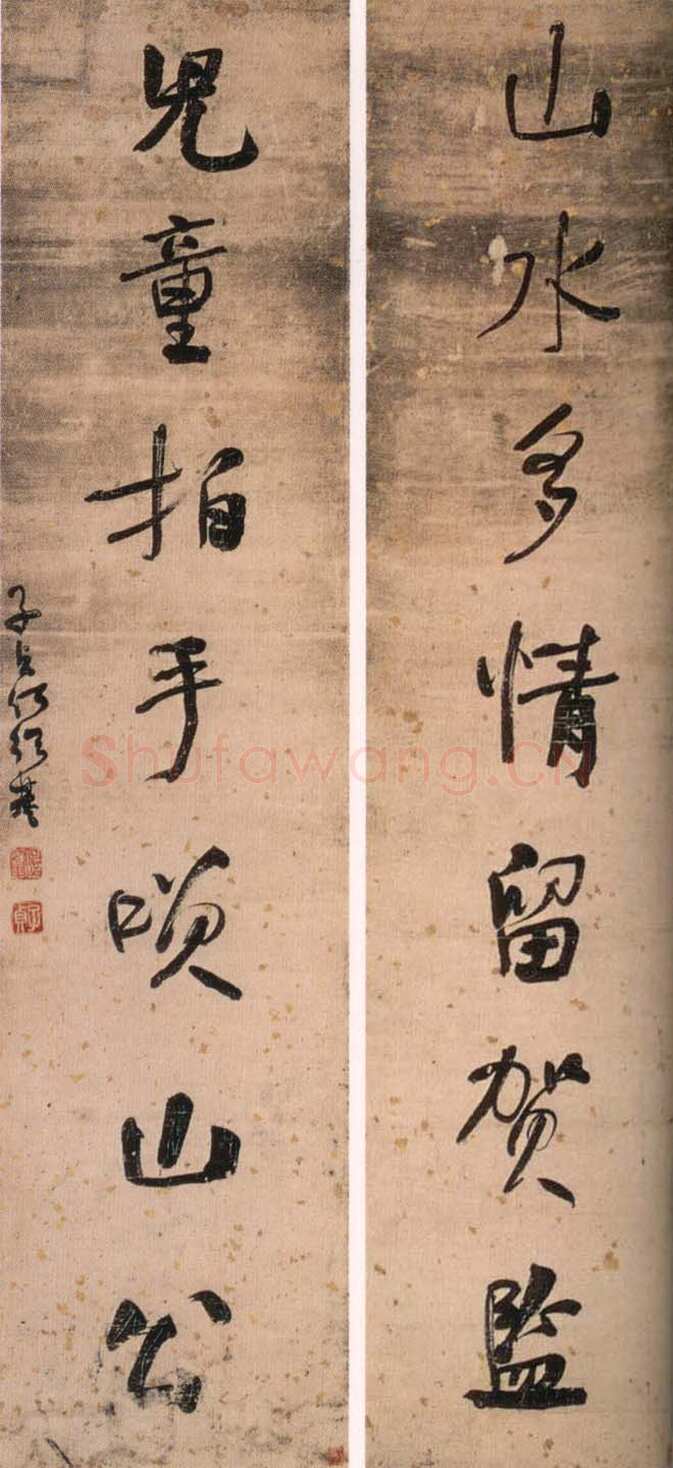 山水多情留賀監
兒童拍手喚山公
子貞何紹基
子貞
Shufawang.cn